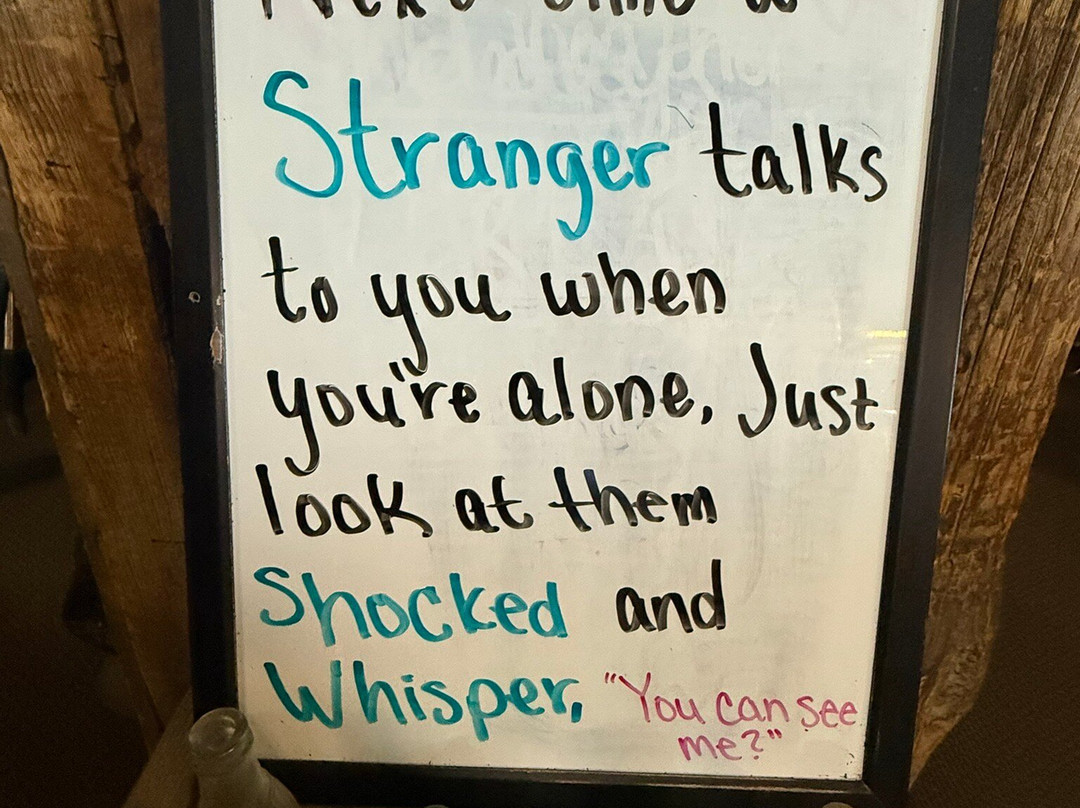 Next time a
Stranger talks
to you when
you're alone, Just
look at them
Shocked and
Whisper, "You can see
me?"